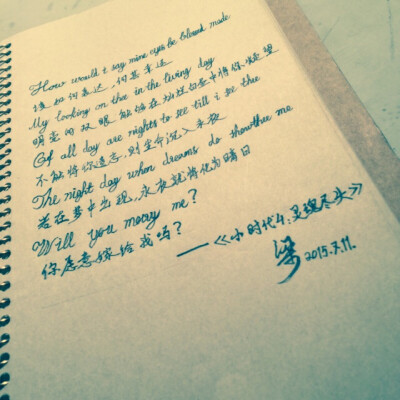 How would't say mine eyes be blessed made
该如何表达,何其幸运
My looking on thee in the living day
明亮的双眼能够在灿烂白昼中将你凝望
Of all day are nights to see till i see thee
不能将你遗忘,则生命沉入永夜
The night day when dreams do show thee me
若在梦中出现,永夜就将化为晴日
Will you marry me?
你愿意嫁给我吗?
——《小时代4:灵魂尽头》
梁 2015.7.11.